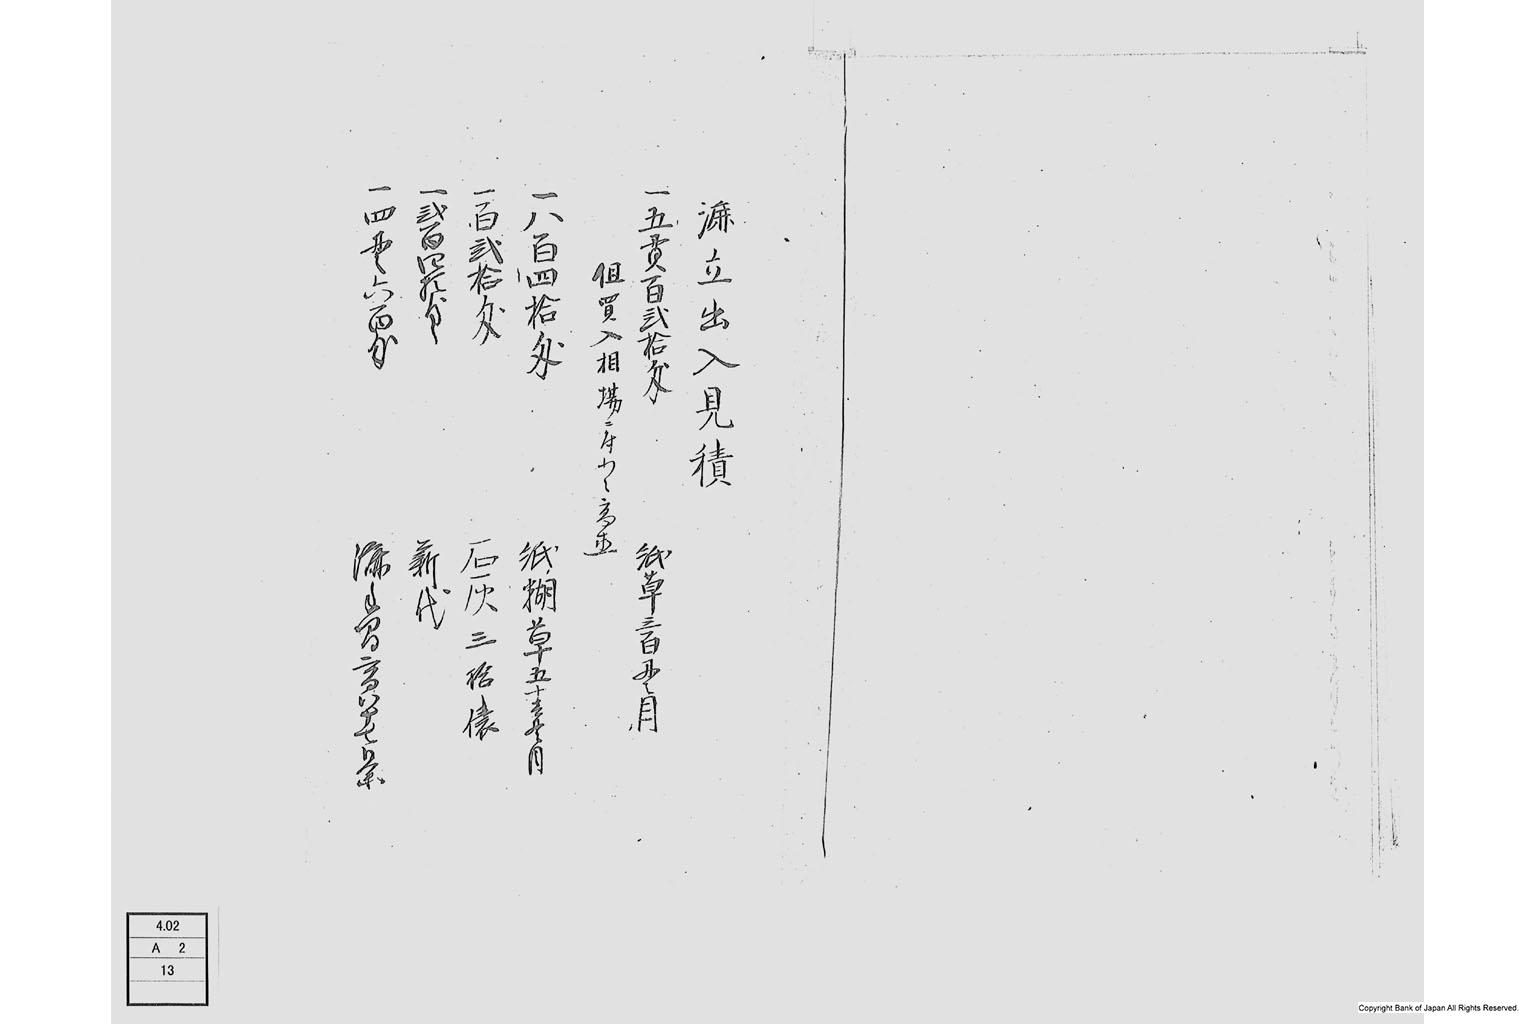 漉立出入見積
一五貫百弐拾匁
紙草三百貫目
但買入相場ニ付少々高直
一八百四拾匁
紙糊草五十貫目
一百弐拾匁
石灰三拾俵
一弐百四拾匁
薪代
一四貫六百匁
漉
4.02
A 2
13
Copyright Bank of Japan All Rights Reserved.